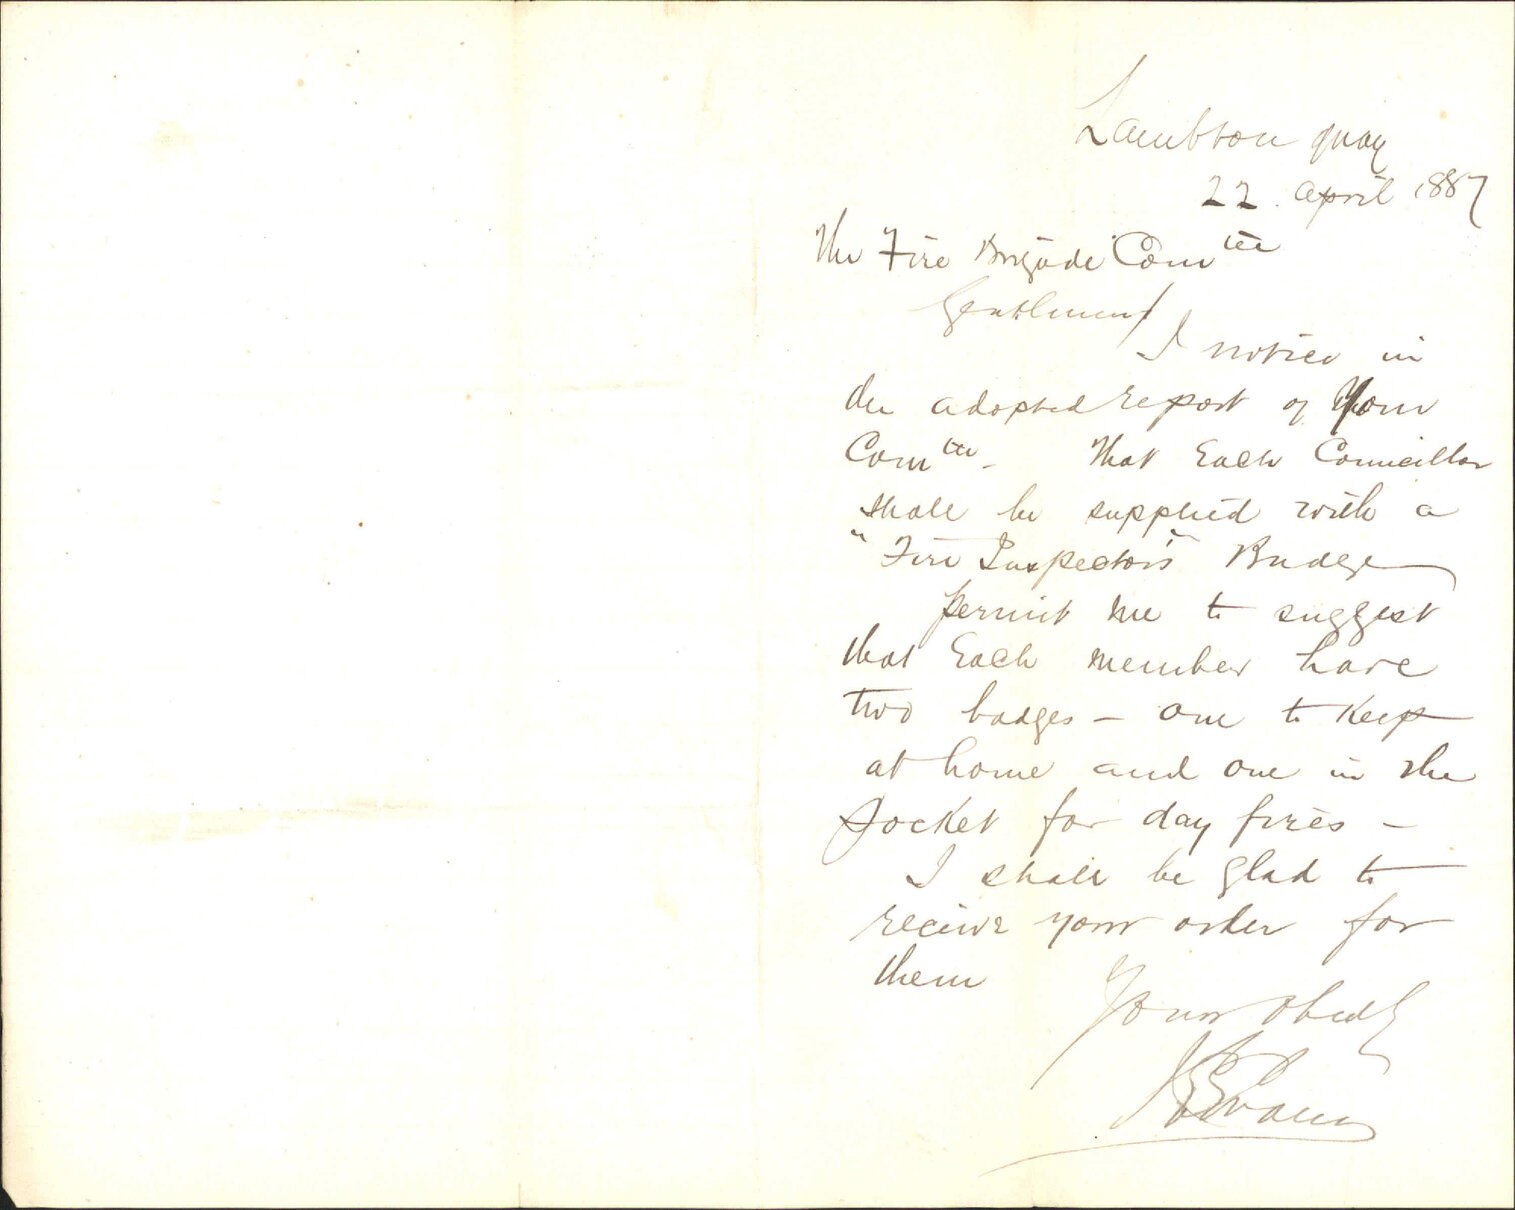 Lambton quay
22. April 1887
The Fire Brigade Com tee
Gentlemen/
I notice in
the adopted report of Your
Com tee - That Each Councillor
shall be supplied with a
"Fire Inspector's" Badge
permit me to suggest
that Each member have
two badges - one to Keep
at home and one in the
Pocket for day fires -
I shall be glad to
receive your order for
them
Your obedt
Evans